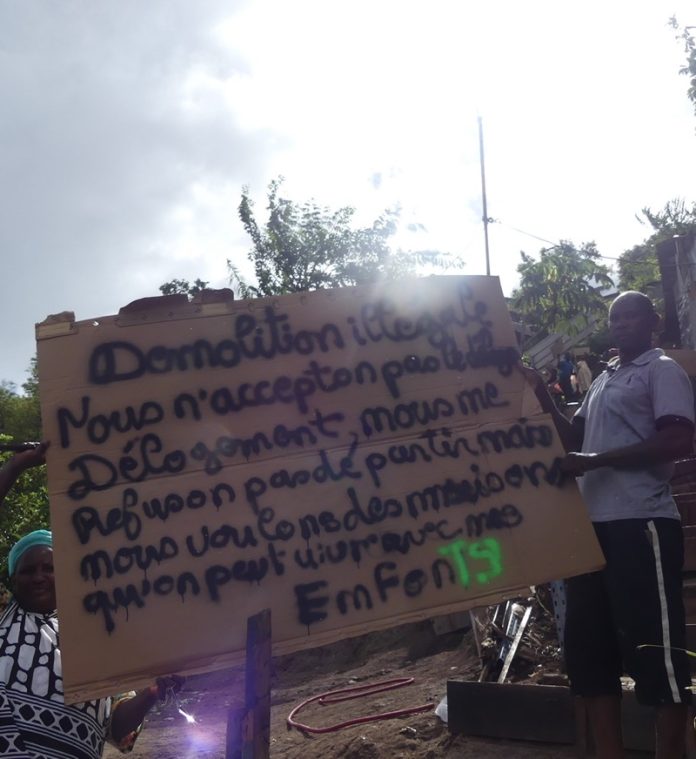 Domolition illégale
Nous n'accepton pas le
Délogement, nous me
Refuson pas de partir mais
nous voulons des maisons
qu'on peut vivre avec mes
EmFonTS